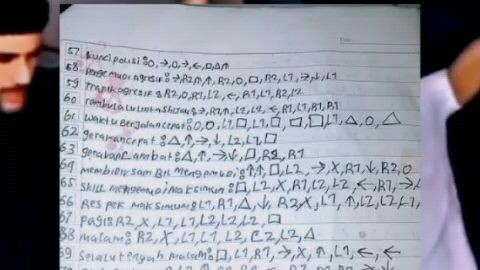 57 kunci polisi:O, →, O, →, ←, □, △↑
58 Pengemudi agresif: →, R2, ↑, ↑, R2, O, □, R2, L1, →, ↓, L1
59 Trapik agresif: R2, O, R1, L2, ←, R1, L1, R2, L2
60 →, R1, ↑, L2, L2, ←, R1, L1, R1, R1
61 waktu Berjalan cepat: O, O, L1, □, L1, □, □, □, L1, △, O, △
62 gerakan cepat: △, ↑, →, ↓, L2, L1, □
63 gerakan Lambat: △, ↑, →, ↓, □, R2, R1
64 membidik sambil mengemudi: ↑, ↑, □, L2, →, X, R1, ↓, R2, O
65 skill mengemudi maksimum: □, L2, X, R1, L2, L2, ←, R1, →
66 Respek maksimum: L1, R1, △, ↓, R2, X, L1, ↑, L2, L2, L1
67 pagi: R2, X, L1, L1, L2, L2, L2, □
68 malam: R2, X, L1, L1, L2, L2, △
69 selalu tengah malam: □, L1, R1, →, X, ↑, L1, ←, ←